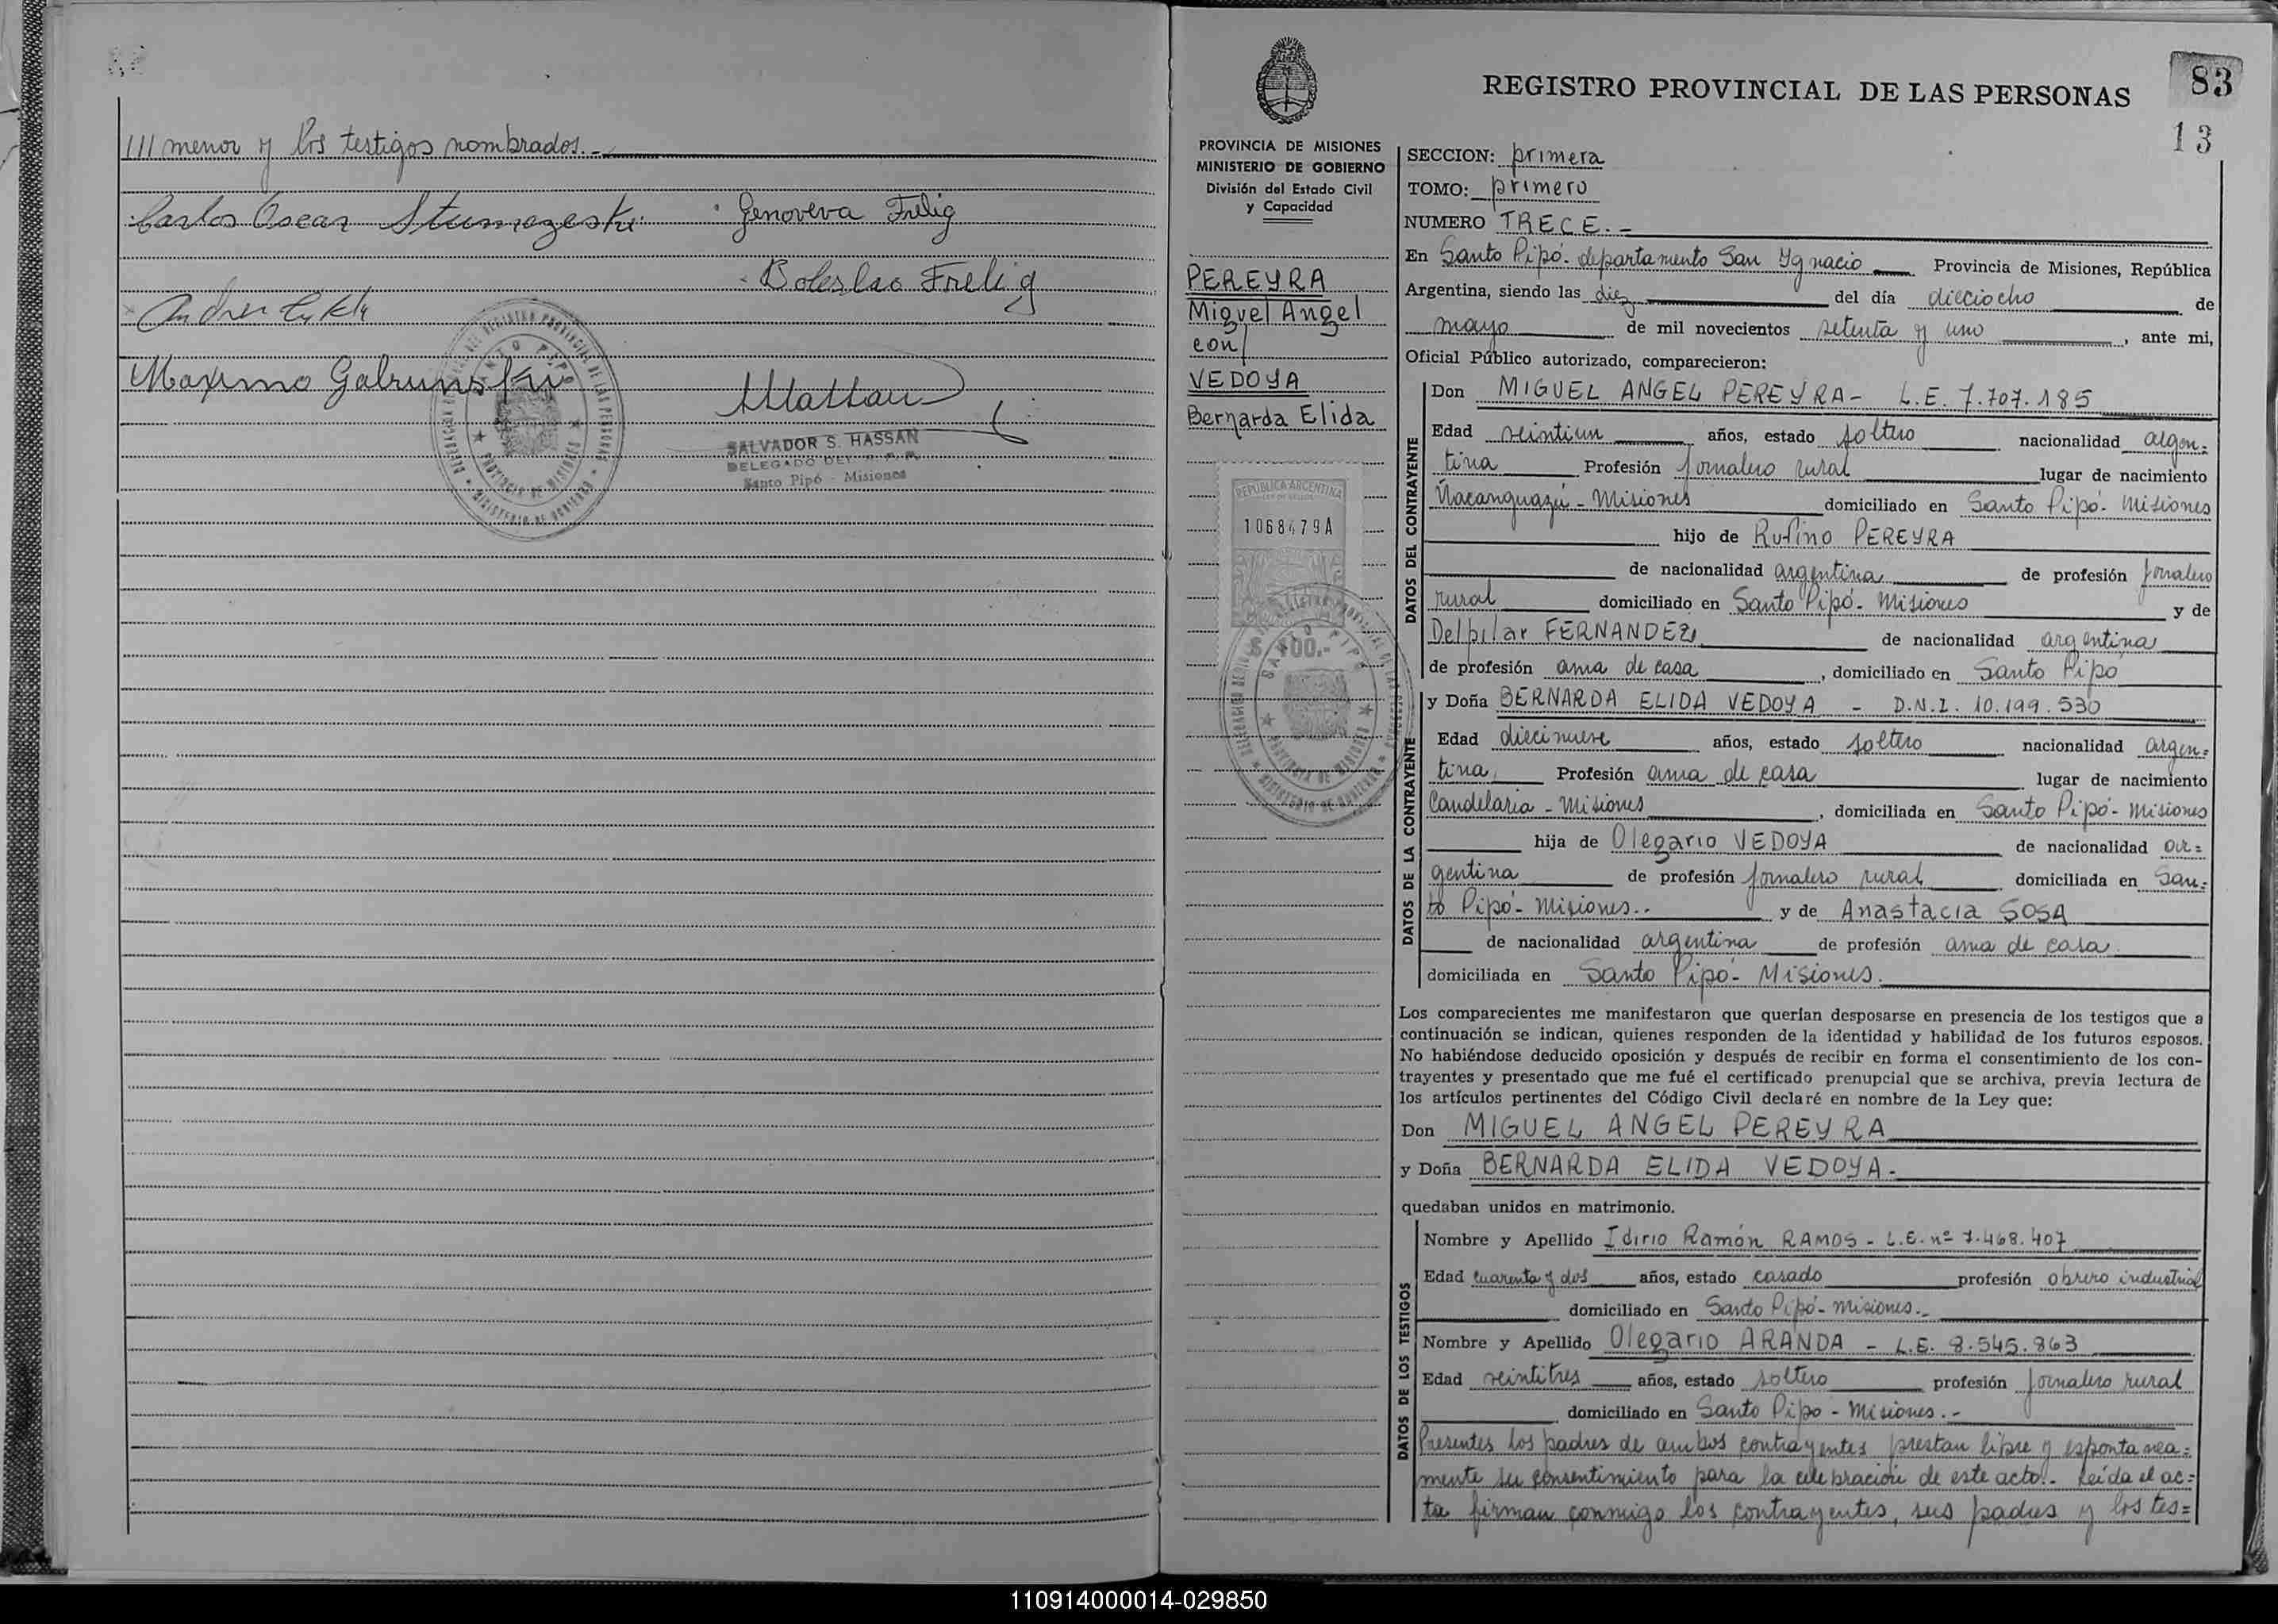 /// menor y los testigos nombrados.-
Carlos Oscar
Genoveva Frelig
Boleslao Frelig
Maximo
SANTO PIPO
PROVINCIA DE MISIONES
SALVADOR S. HASSAN
DELEGADO DEL R. P. P.
Santo Pipó - Misiones
83
13
REGISTRO PROVINCIAL DE LAS PERSONAS
PROVINCIA DE MISIONES
MINISTERIO DE GOBIERNO
División del Estado Civil
y Capacidad
PEREYRA
Miguel Angel
con/
VEDOYA
Bernarda Elida
REPUBLICA ARGENTINA
1068479A
SANTO PIPO
PROVINCIA DE MISIONES
SECCION: primera
TOMO: primero
NUMERO TRECE.-
En Santo Pipó- departamento San Ygnacio Provincia de Misiones, República
Argentina, siendo las diez del día dieciocho de
mayo de mil novecientos setenta y uno, ante mi,
Oficial Público autorizado, comparecieron:
DATOS DEL CONTRAYENTE
Don MIGUEL ANGEL PEREYRA- L.E. 7.707.185
Edad veintiun años, estado soltero nacionalidad argen=
tina Profesión jornalero rural lugar de nacimiento
Ñacanguazú - Misiones domiciliado en Santo Pipó- Misiones
hijo de Rufino PEREYRA
de nacionalidad argentina de profesión jornalero
rural domiciliado en Santo Pipó- Misiones y de
Delpilar FERNANDEZ de nacionalidad argentina
de profesión ama de casa, domiciliado en Santo Pipó
DATOS DE LA CONTRAYENTE
y Doña BERNARDA ELIDA VEDOYA - D.N.I. 10.199.530
Edad diecinueve años, estado soltero nacionalidad argen=
tina Profesión ama de casa lugar de nacimiento
Candelaria - Misiones, domiciliada en Santo Pipó- Misiones
hija de Olegario VEDOYA de nacionalidad ar=
gentina de profesión jornalero rural domiciliada en San=
to Pipó- Misiones.- y de Anastacia SOSA
de nacionalidad argentina de profesión ama de casa
domiciliada en Santo Pipó- Misiones.
Los comparecientes me manifestaron que querían desposarse en presencia de los testigos que a
continuación se indican, quienes responden de la identidad y habilidad de los futuros esposos.
No habiéndose deducido oposición y después de recibir en forma el consentimiento de los con-
trayentes y presentado que me fué el certificado prenupcial que se archiva, previa lectura de
los artículos pertinentes del Código Civil declaré en nombre de la Ley que:
Don MIGUEL ANGEL PEREYRA
y Doña BERNARDA ELIDA VEDOYA.-
quedaban unidos en matrimonio.
DATOS DE LOS TESTIGOS
Nombre y Apellido Idirio Ramón RAMOS - L.E. nº 7.468.407
Edad cuarenta y dos años, estado casado profesión obrero industrial
domiciliado en Santo Pipó- Misiones.-
Nombre y Apellido Olegario ARANDA - L.E. 8.545.863
Edad veintitres años, estado soltero profesión jornalero rural
domiciliado en Santo Pipó - Misiones.-
Presentes los padres de ambos contrayentes prestan libre y espontanea=
mente su consentimiento para la celebración de este acto.- Leída el ac=
ta firman conmigo los contrayentes, sus padres y los tes=
110914000014-029850